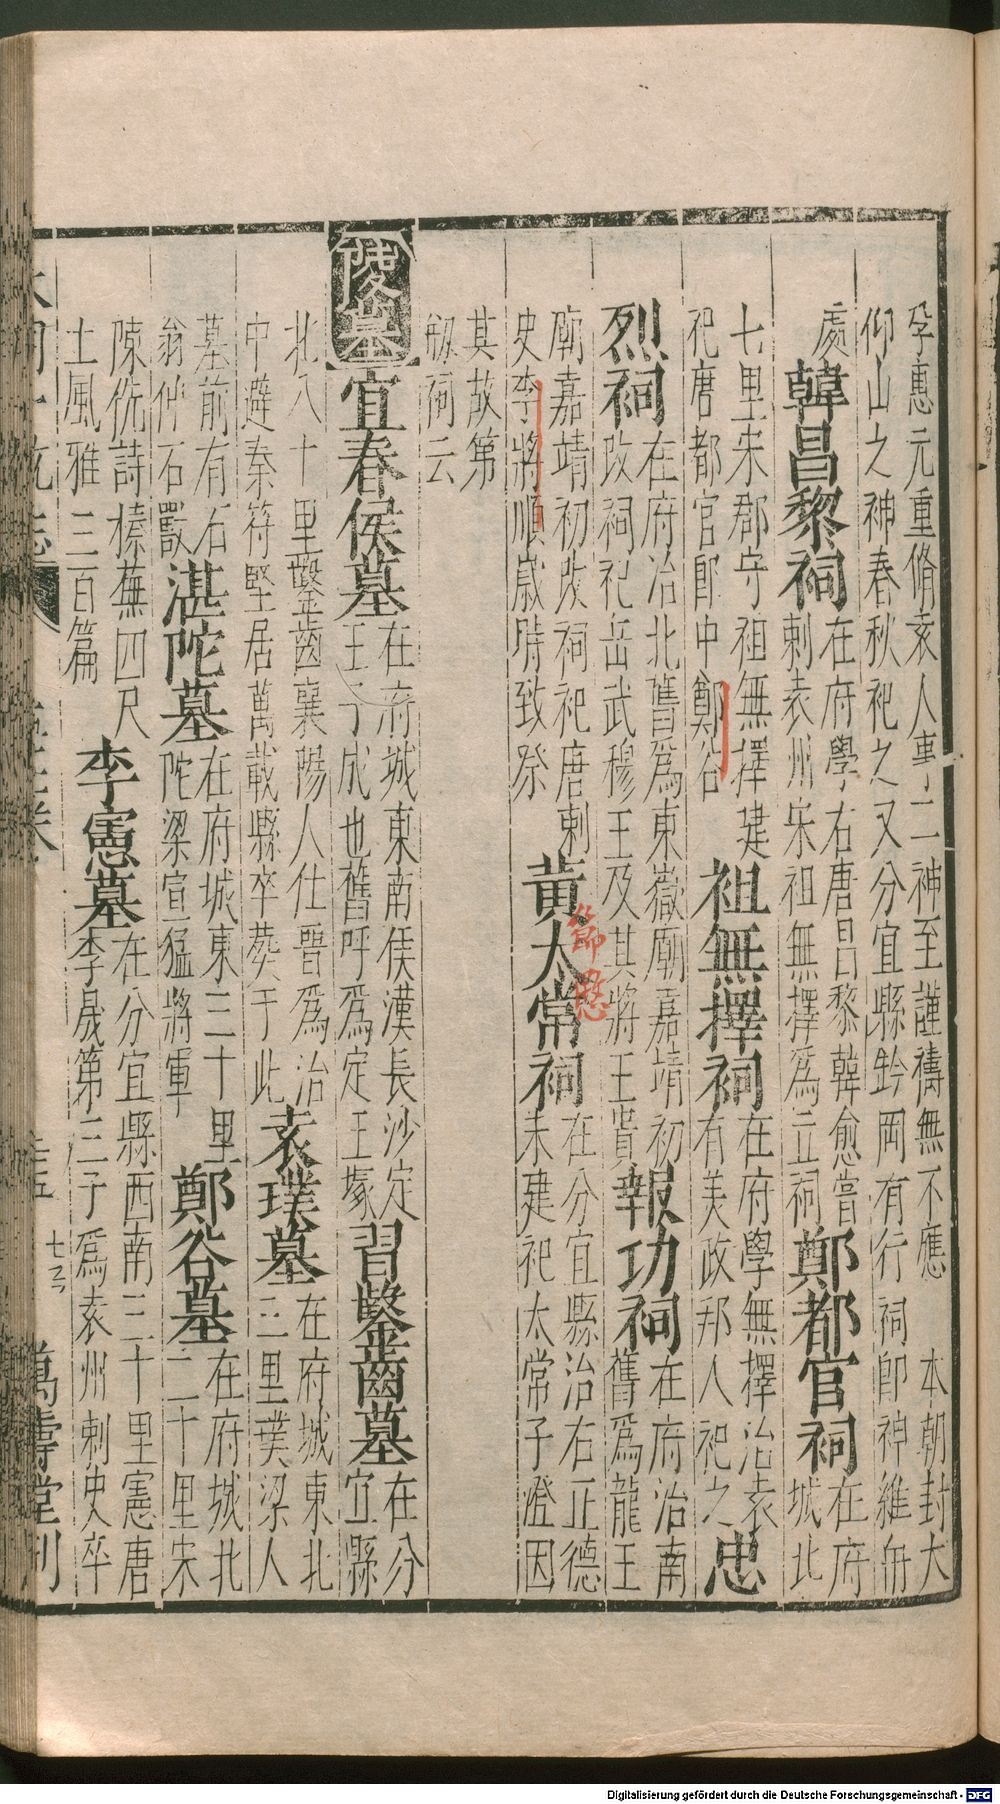 孕惠元重脩袁人事二神至謹禱無不應　本朝封大
仰山之神春秋祀之又分宜縣鈐岡有行祠卽神維
處韓昌黎祠在府學右唐昌黎韓愈嘗鄭都官祠在府
刺袁州宋祖無擇爲立祠城北
七里宋郡守祖無擇建祖無擇祠在府學無擇治袁忠
祀唐都官郎中鄭谷有美政邦人祀之
烈祠在府治北舊爲東嶽廟嘉靖初報功祠在府治南
改祠祀岳武穆王及其將王貴舊爲龍王
廟嘉靖初改祠祀唐刺黃太常祠在分宜縣治右正德
史李將順歲時致祭未建祀太常子澄因
節愍
其故第
剏祠云
陵墓宜春侯墓在府城東南侯漢長沙定習鑿齒墓在分
王子成也舊呼爲定王塚宜縣
北八十里鑿齒襄陽人仕晉爲治袁璞墓在府城東北
中避秦符堅居萬載縣卒葬于此三里璞梁人
墓前有石湛陀墓在府城東三十里鄭谷墓在府城北
翁仲石獸陀梁宣猛將軍二十里宋
陳侁詩榛蕪四尺李憲墓在分宜縣西南三十里憲唐
土風雅三百篇李晟第三子爲袁州刺史卒
七三
萬壽堂刊
Digitalisierung gefördert durch die Deutsche Forschungsgemeinschaft - DFG